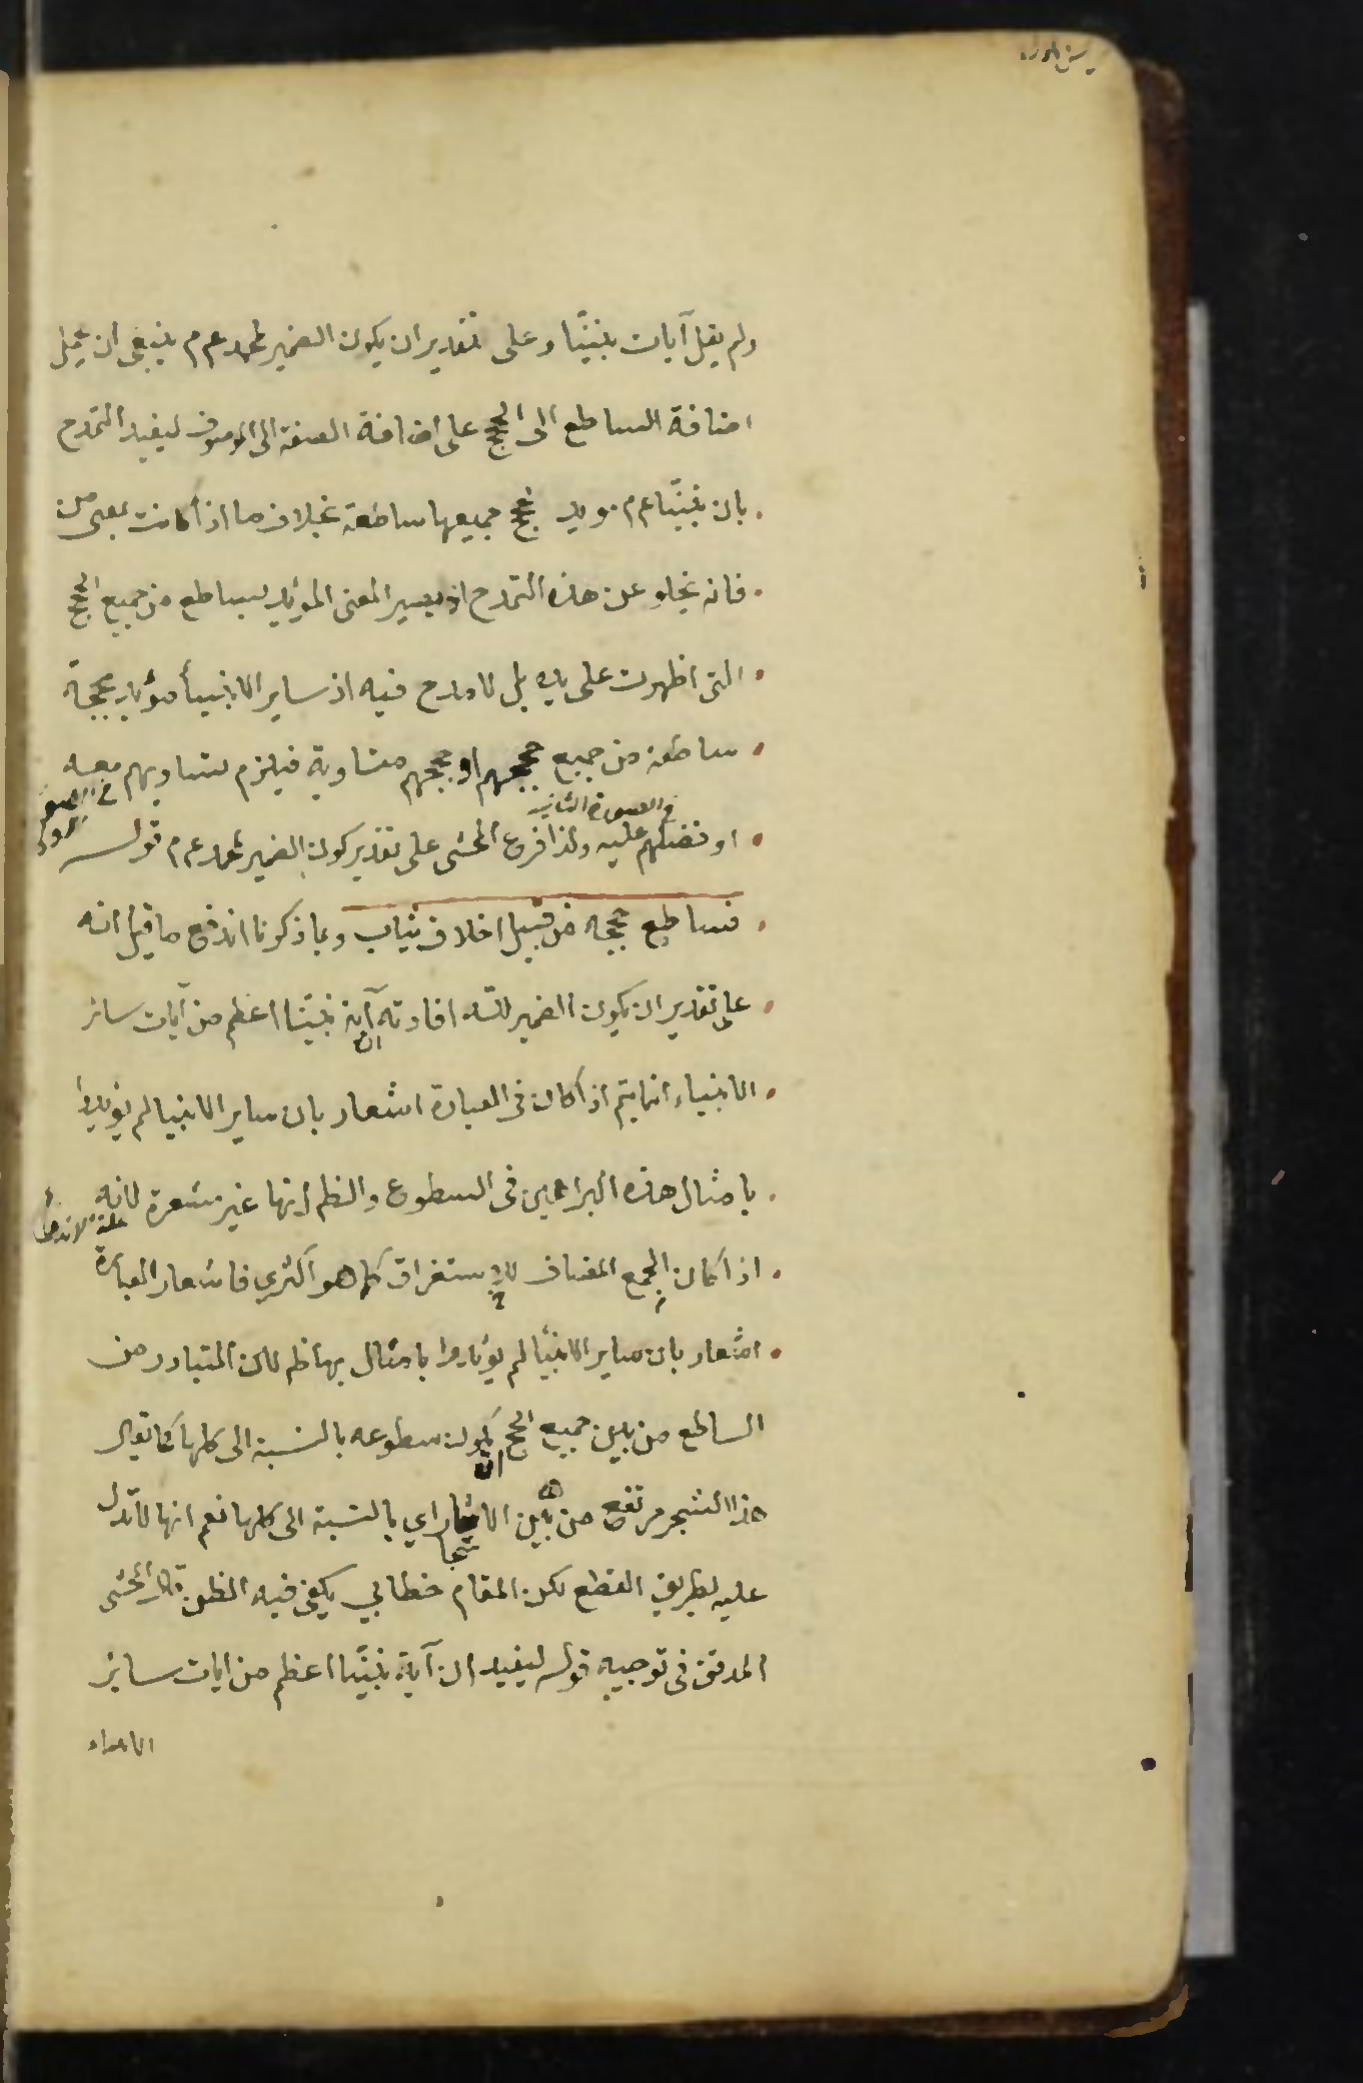 ولم يقل آيات نبينا وعلى تقدير ان يكون الضمير لمحمد عم م ينبغى ان يحمل
اضافة الساطع الى الحجج على اضافة الصفة الى الموصوف ليفيد التمدح
بان نبينا عم م مويد بحجج جميعها ساطعة بخلاف ما اذا كانت بمعنى من
فانه يخلو عن هذه التمدح اذ يصير المعنى المؤيد بساطع من جميع الحجج
التى اظهرت على يده بل لا مدح فيه اذ ساير الانبيأ مؤيد بحجة
ساطعة من جميع حججهم او حججهم متساوية فيلزم تساويهم معه
فى الصورة الاولى
فى الصورة الثانية
او فضلهم عليه ولذا فرع المحشى على تقدير كون الضمير لمحمد عم م قوله
فساطع حججه من قبيل اخلاق ثياب وبما ذكرنا اندفع ما قيل انه
على تقدير ان يكون الضمير للله افادته ان آية نبينا اعظم من آيات سائر
الانبياء انما يتم اذا كان فى العبارة اشعار بان ساير الانبيا لم يؤيدوا
بامثال هذه البراهين فى السطوع والظم انها غير مشعرة لانه
علة لاندفع
اذا كان الجمع المضاف للاستغراق كما هو اكثري فاشعار العبارة
اشعار بان ساير الانبيأ لم يؤيدوا بامثال بها ظم لان المتبادر من
الساطع من بين جميع الحجج ان يكون سطوعه بالنسبة الى كلها كما تقول
هذا الشجر مرتفع من بين هذه الاشجار اي بالنسبة الى كلها نعم انها لا تدل
عليه بطريق القطع لكن المقام خطابي يكفى فيه الظن قال المحشى
المدقق فى توجيه قوله ليفيد ان آية نبينا اعظم من ايات سائر
الانبياء